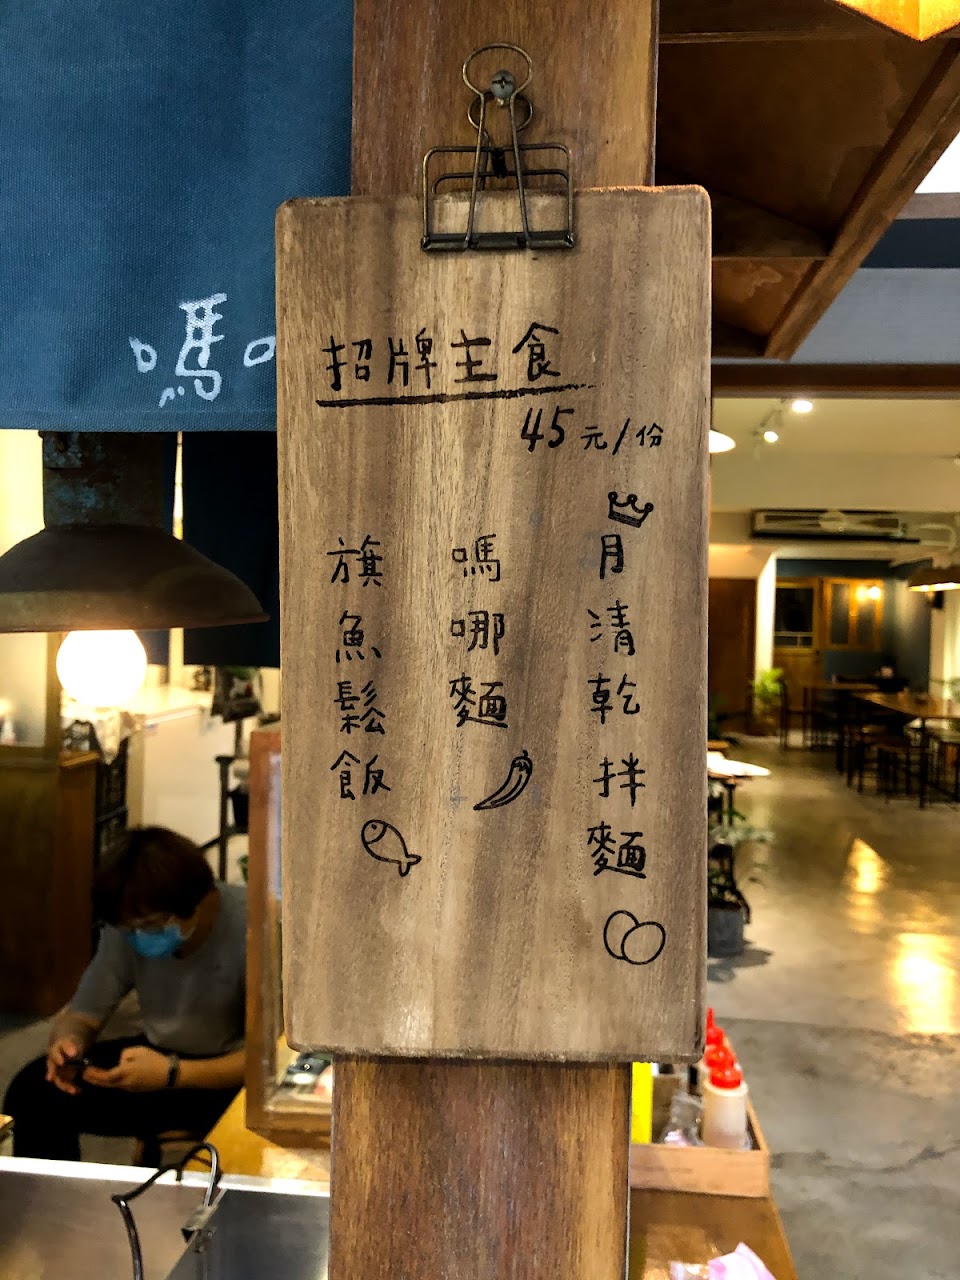 招牌主食
45元/份
月清乾拌麵
嗎哪麵
旗魚鬆飯
嗎